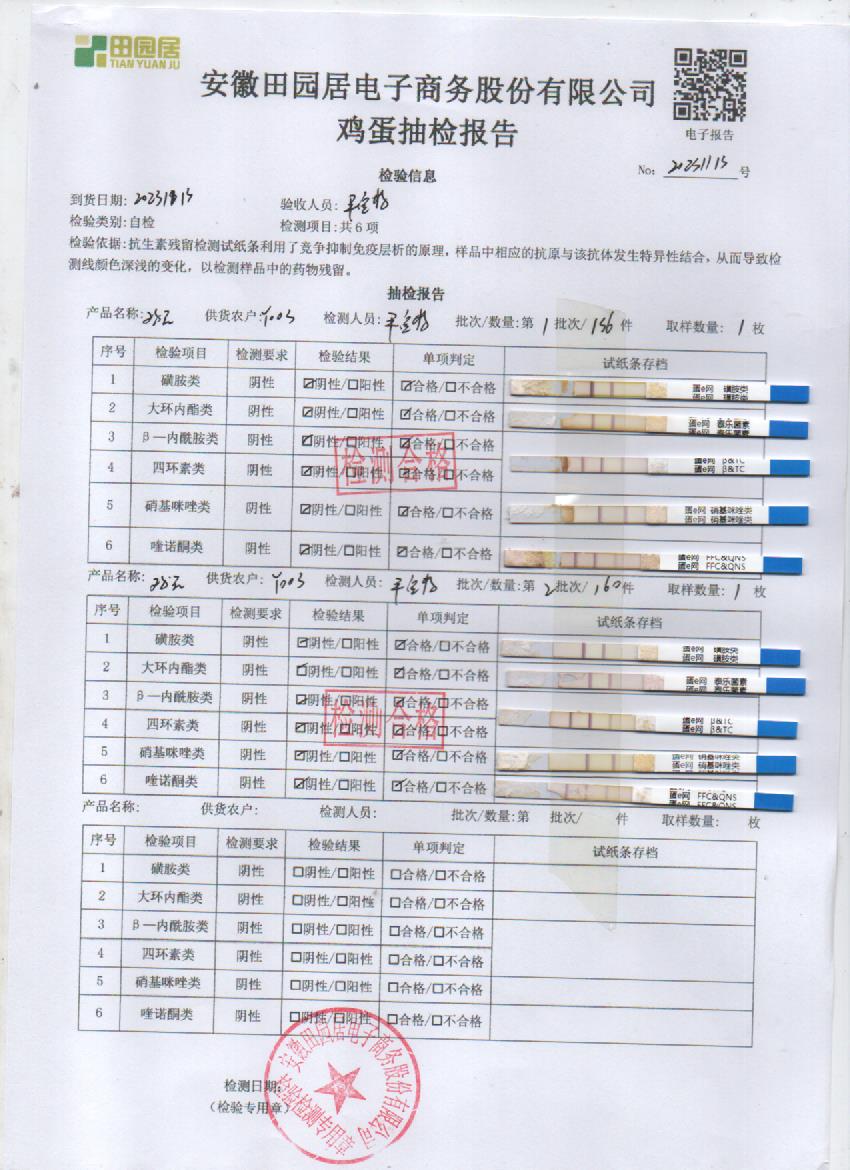 田园居
TIAN YUAN JU
安徽田园居电子商务股份有限公司
鸡蛋抽检报告
电子报告
检验信息
No: 20231113 号
到货日期: 验收人员:
检验类别:自检 检测项目:共6项
检验依据:抗生素残留检测试纸条利用了竞争抑制免疫层析的原理,样品中相应的抗原与该抗体发生特异性结合,从而导致检
测线颜色深浅的变化,以检测样品中的药物残留。
抽检报告
产品名称: 供货农户: 检测人员: 批次/数量:第 1 批次/ 156 件 取样数量: 1 枚
序号 检验项目 检测要求 检验结果 单项判定 试纸条存档
1 磺胺类 阴性 ☑阴性/☐阳性 ☑合格/☐不合格 蛋e网 磺胺类
蛋e网 磺胺类
2 大环内酯类 阴性 ☑阴性/☐阳性 ☑合格/☐不合格 蛋e网 泰乐菌素
蛋e网 泰乐菌素
3 β—内酰胺类 阴性 ☑阴性/☐阳性 ☑合格/☐不合格
检测合格
4 四环素类 阴性 ☑阴性/☐阳性 ☑合格/☐不合格 蛋e网 β&TC
蛋e网 β&TC
5 硝基咪唑类 阴性 ☑阴性/☐阳性 ☑合格/☐不合格 蛋e网 硝基咪唑类
蛋e网 硝基咪唑类
6 喹诺酮类 阴性 ☑阴性/☐阳性 ☑合格/☐不合格 蛋e网 FFC&QNS
蛋e网 FFC&QNS
产品名称: 供货农户: 检测人员: 批次/数量:第 2 批次/ 160 件 取样数量: 1 枚
序号 检验项目 检测要求 检验结果 单项判定 试纸条存档
1 磺胺类 阴性 ☑阴性/☐阳性 ☑合格/☐不合格 蛋e网 磺胺类
蛋e网 磺胺类
2 大环内酯类 阴性 ☑阴性/☐阳性 ☑合格/☐不合格 蛋e网 泰乐菌素
蛋e网 泰乐菌素
3 β—内酰胺类 阴性 ☑阴性/☐阳性 ☑合格/☐不合格
检测合格
4 四环素类 阴性 ☑阴性/☐阳性 ☑合格/☐不合格 蛋e网 β&TC
蛋e网 β&TC
5 硝基咪唑类 阴性 ☑阴性/☐阳性 ☑合格/☐不合格 蛋e网 硝基咪唑类
蛋e网 硝基咪唑类
6 喹诺酮类 阴性 ☑阴性/☐阳性 ☑合格/☐不合格 蛋e网 FFC&QNS
蛋e网 FFC&QNS
产品名称: 供货农户: 检测人员: 批次/数量:第 批次/ 件 取样数量: 枚
序号 检验项目 检测要求 检验结果 单项判定 试纸条存档
1 磺胺类 阴性 ☐阴性/☐阳性 ☐合格/☐不合格
2 大环内酯类 阴性 ☐阴性/☐阳性 ☐合格/☐不合格
3 β—内酰胺类 阴性 ☐阴性/☐阳性 ☐合格/☐不合格
4 四环素类 阴性 ☐阴性/☐阳性 ☐合格/☐不合格
5 硝基咪唑类 阴性 ☐阴性/☐阳性 ☐合格/☐不合格
6 喹诺酮类 阴性 ☐阴性/☐阳性 ☐合格/☐不合格
安徽田园居电子商务股份有限公司
检验检测专用章
检测日期:
(检验专用章)